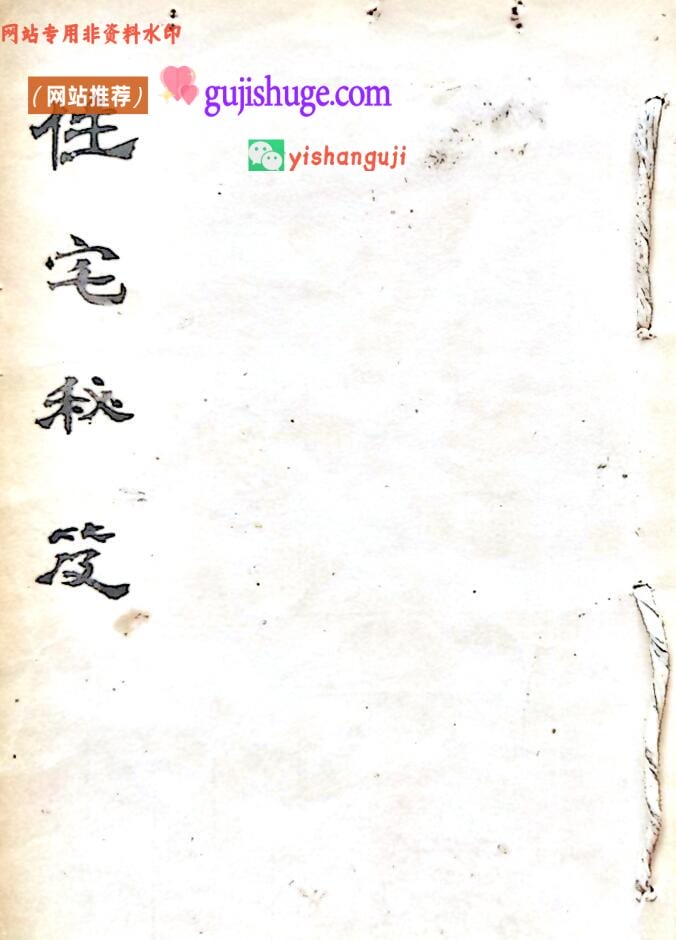 网站专用非资料水印
（网站推荐）
gujishuge.com
yishanguji
住宅秘笈